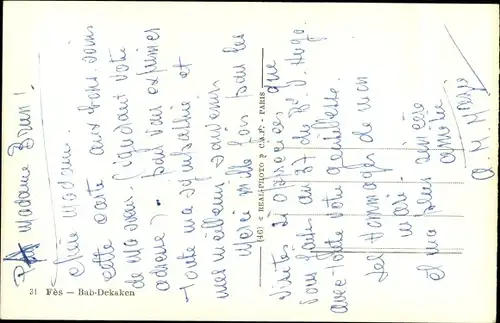 Madame Brun!
Chère Madame
cette carte aux bons soins
de Maman. (ignorant votre
adresse) pour vous exprimer
toute ma sympathie et
mes meilleurs souvenirs
Merci mille fois pour les
visites si exprès que
vous faites au 37 du Bd V. Hugo.
avec toute votre gentillesse.
Les hommages de mon
mari
et ma plus sincère
amitié
(46) « REAL-PHOTO » C.A.P. - PARIS
31 Fès — Bab-Dekaken